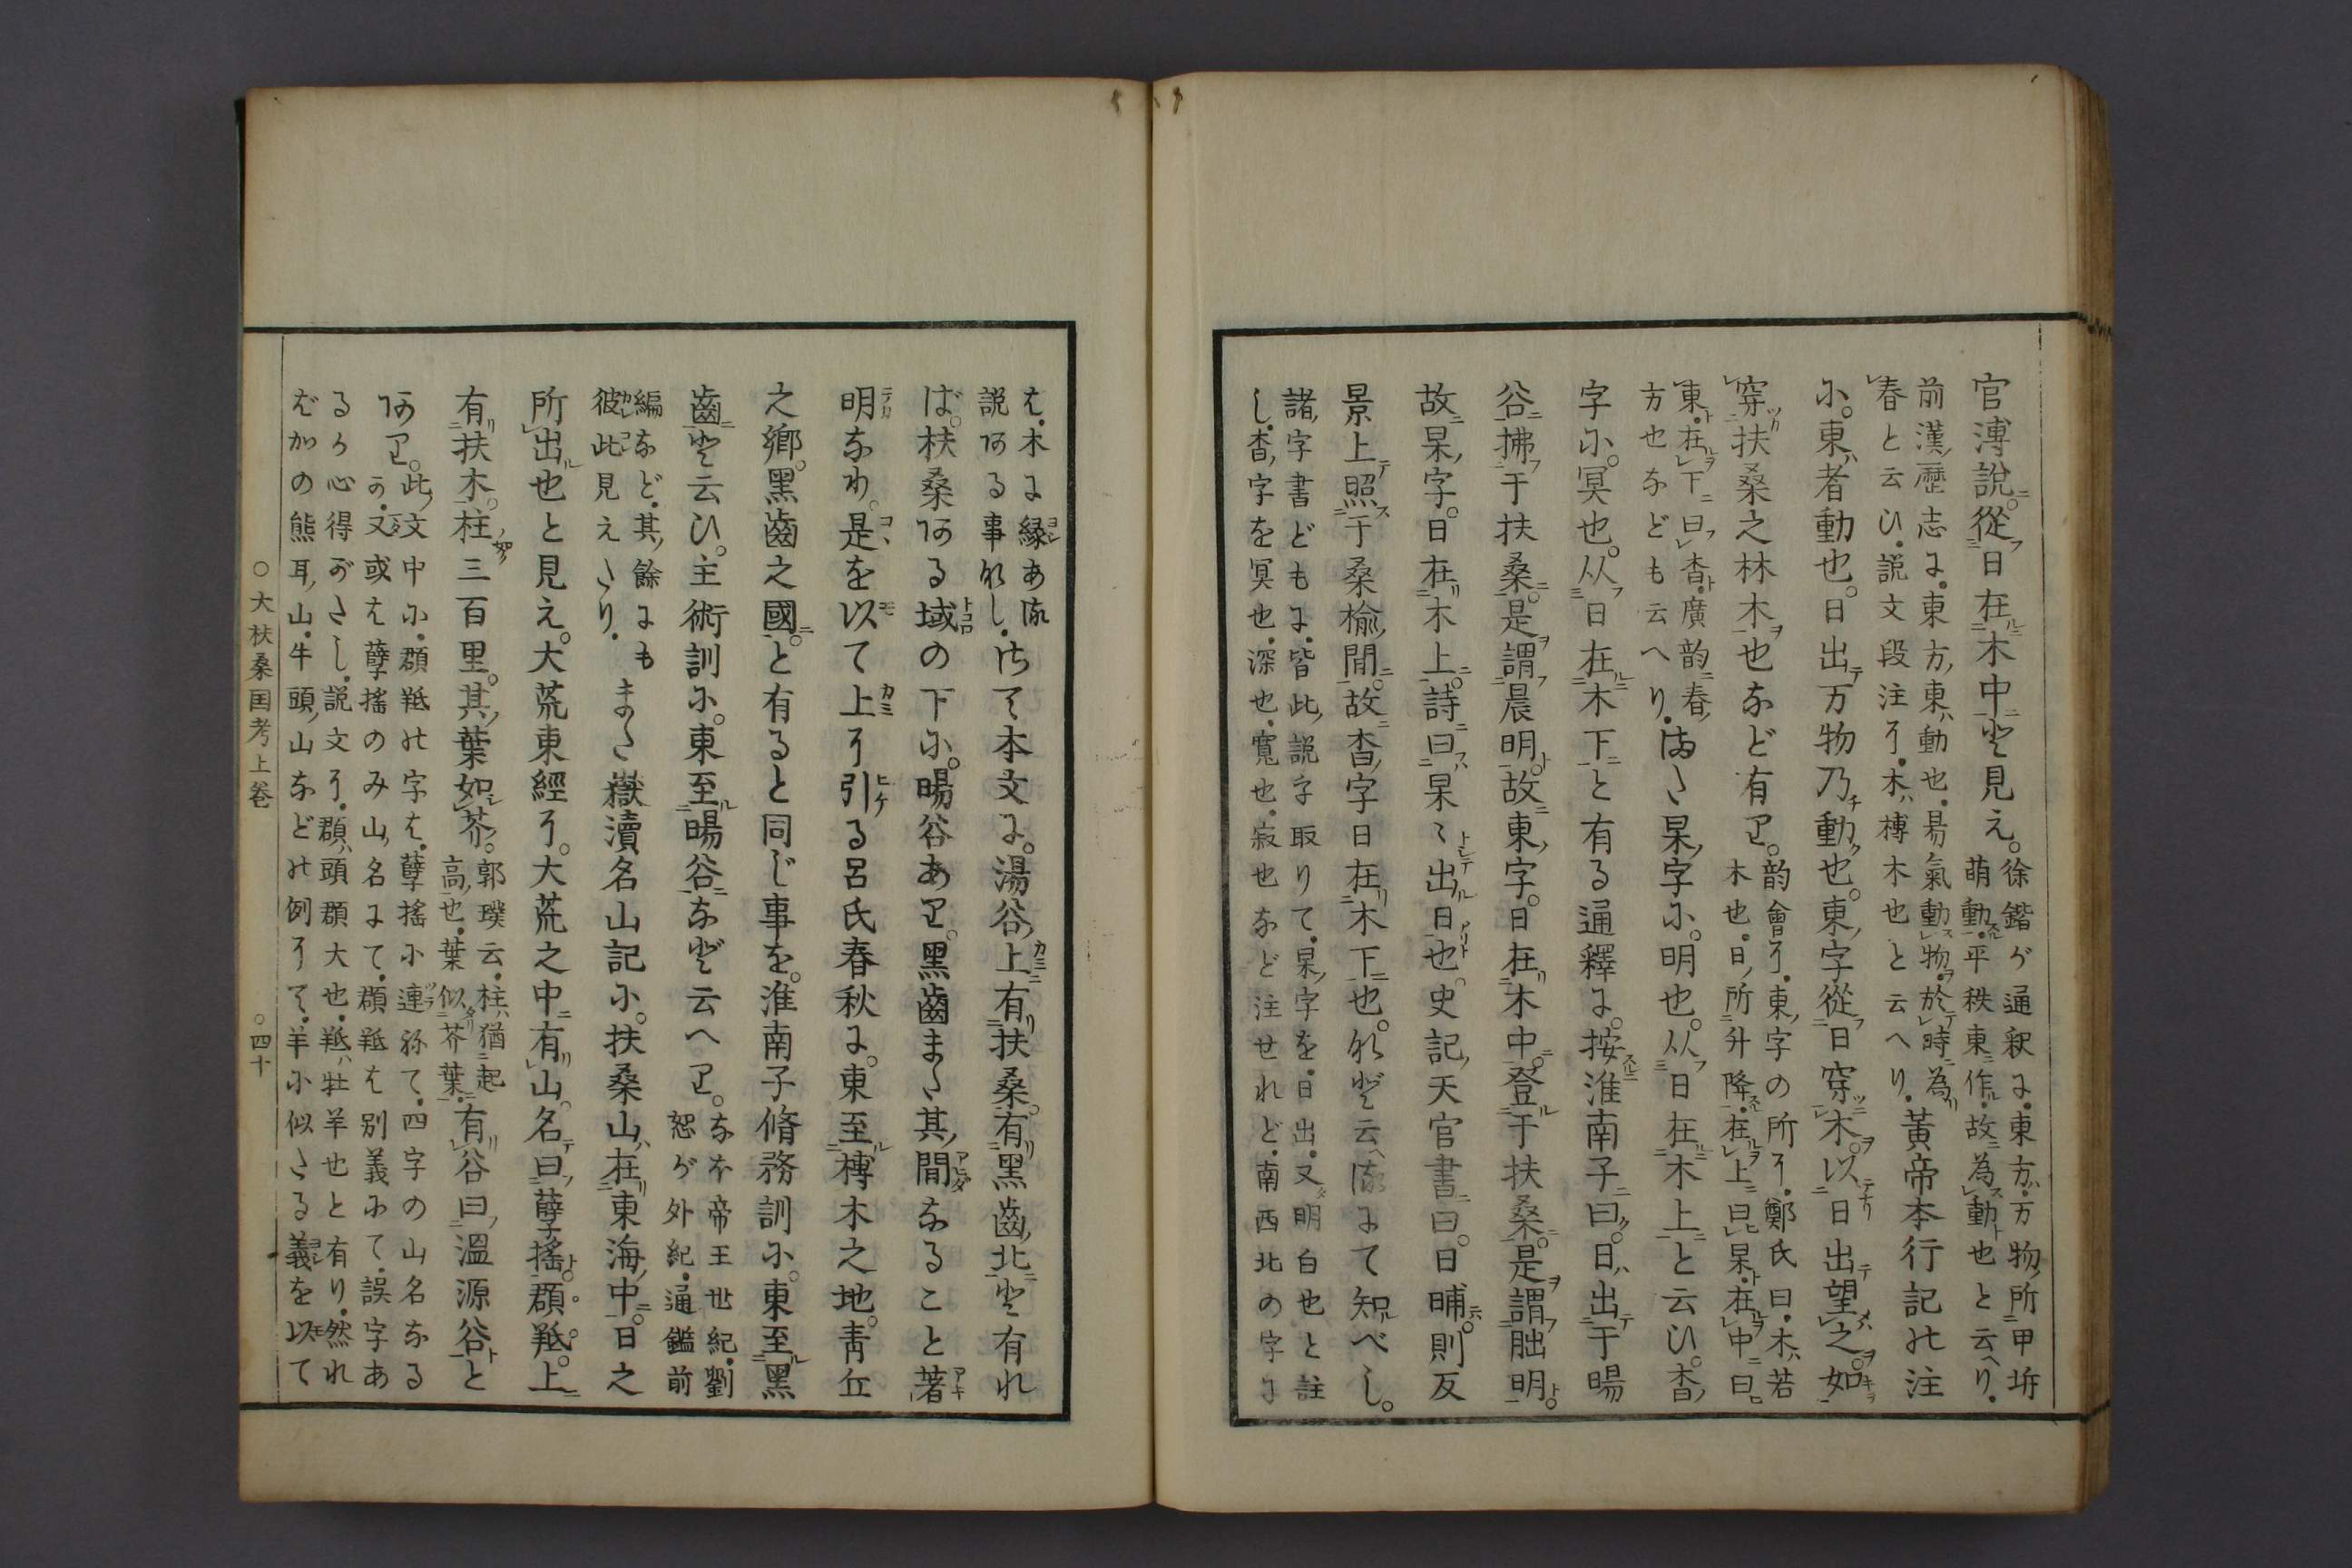 官溥說。從日在木中と見え。徐鍇が通釈に。東方。万物所甲坼
萌動。平秩東作。故為動也と云へり。
前漢歷志に。東方東動也。昜氣動物。於時為
春と云ひ。說文段注に。木榑木也と云へり。黃帝本行記の注
に。東者動也。日出万物乃動也。東字從日穿木。以日出望之。如
穿扶桑之林木也など有り。韵會に。東字の所に。鄭氏曰。木若
木也。日所升降。在上曰杲。在中曰
東。在下曰杳。廣韵春
方也なども云へり。また杲字に。明也。从日在木上と云ひ。杳
字に。冥也。从日在木下と有る通釋に。按淮南子曰。日出于暘
谷。拂于扶桑。是謂晨明。故東字。日在木中。登于扶桑。是謂朏明。
故杲字。日在木上。詩曰。杲〻出日也。史記天官書曰。日晡則反
景上照于桑榆閒。故杳字日在木下也。など云へるにて知べし。
諸字書どもに。皆此說字取りて。杲字を。日出。又明白也と註
し。杳字を冥也。深也。寬也。寂也など注せれど。南西北の字に
は。木に緣ある
說ある事なし。さて本文に。湯谷上有扶桑。有黑齒北と有れ
ば。扶桑ある域の下に。暘谷あり。黑齒また其閒なること著
明なり。是を以て上に引ける呂氏春秋に。東至榑木之地。青丘
之鄉。黑齒之國。と有ると同じ事を。淮南子脩務訓に。東至黑
齒と云ひ。主術訓に。東至暘谷など云へり。なほ帝王世紀。劉
恕が外紀。通鑑前
編など。其餘にも
彼此見えたり。また嶽瀆名山記に。扶桑山在東海中。日之
所出也と見え。大荒東經に。大荒之中有山。名曰孽搖頵羝。上
有扶木。柱三百里。其葉如芥。郭璞云。柱猶起
高也。葉似芥葉。有谷曰溫源谷と
あり。此文中に。頵羝の字は。孽搖に連ねて。四字の山名なる
か。又或は孽搖のみ山名にて。頵羝は別義にて。誤字あ
るか心得がたし。說文に。頵頭頵大也。羝牡羊也と有り。然れ
ばかの熊耳山。牛頭山などの例にて。羊に似たる義を以て
○大扶桑国考上卷　○四十